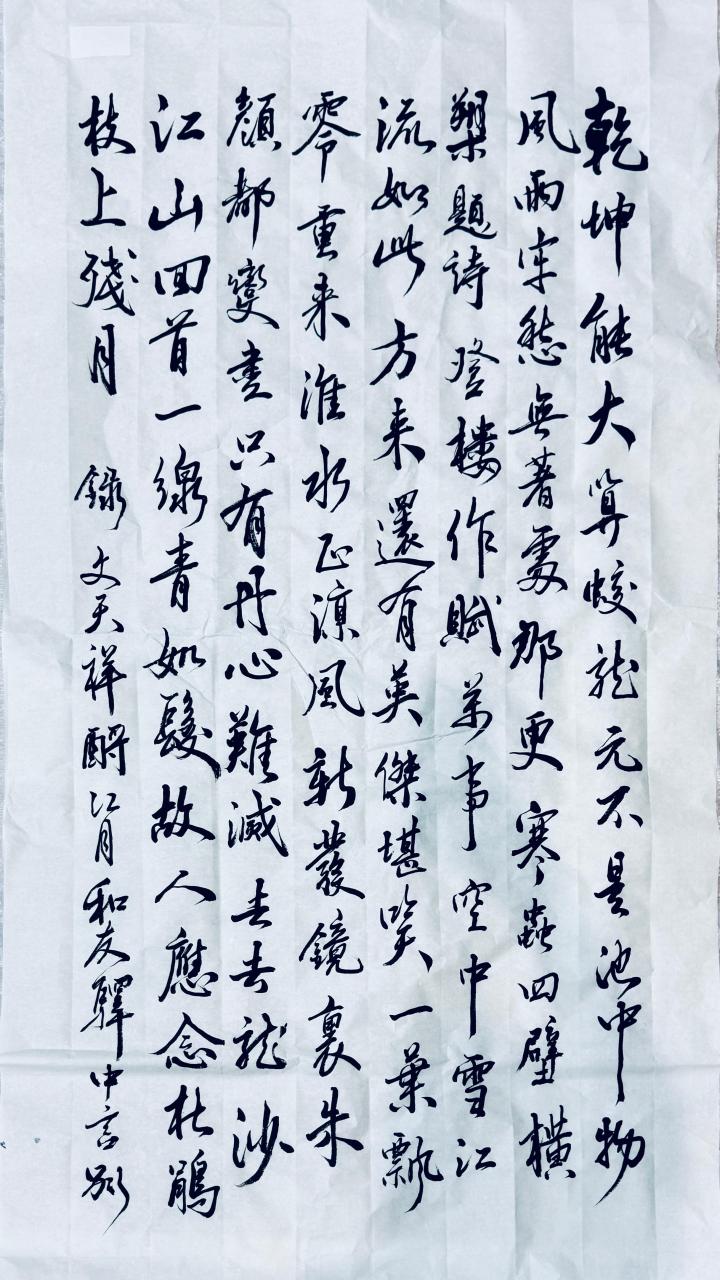 乾坤能大算蛟龍元不是池中物
風雨牢愁無著處那更寒蟲四壁橫
槊題詩登樓作賦萬事空中雪江
流如此方来還有英傑堪笑一葉飄
零重来淮水正涼風新發鏡裏朱
顏都變盡只有丹心難滅去去龍沙
江山回首一線青如髮故人應念杜鵑
枝上殘月 錄文天祥酹江月和友驛中言別